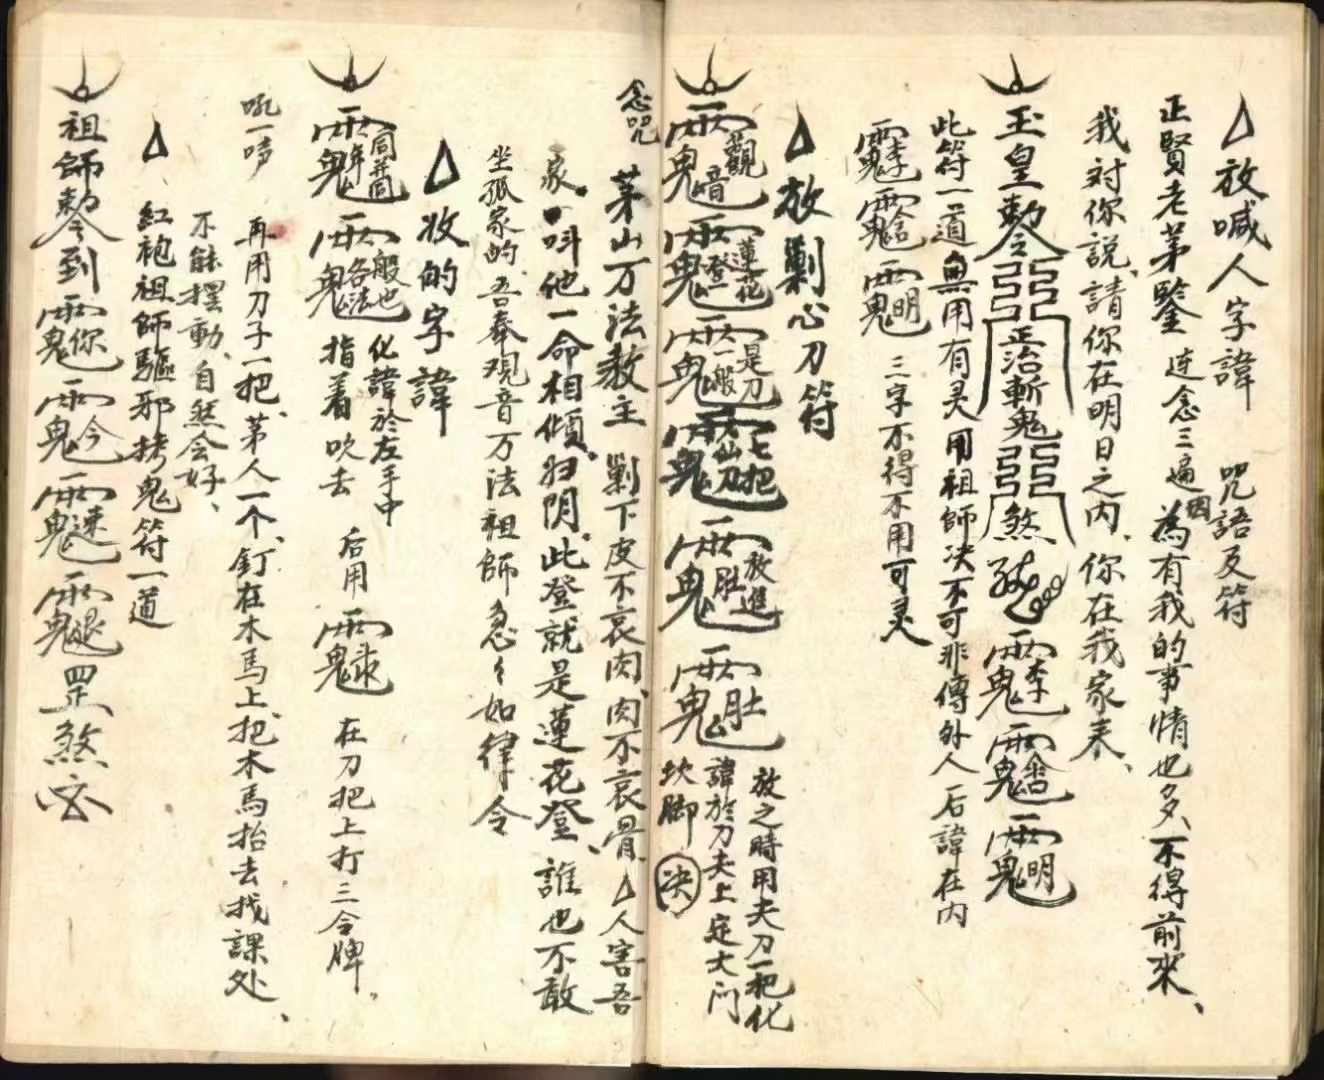 放喊人字諱 咒語及符
正賢老茅鑒 连念三遍 因為有我的事情也多、不得前來、
我对你說、請你在明日之内、你在我家来、
玉皇勅令 正治斬鬼 煞
此符一道 無用有灵 用祖師决不可非傳外人 后諱在内
三字不得不用可灵
放剿心刀符
觀音 蓮花登 是刀一般 七把 放進肚 肚
放之時用夫刀一把化
諱於刀夫上 定大门
坎脚 决
念咒 茅山万法教主 剿下皮不哀肉、肉不哀骨、人害吾
家、叫他一命相傾归阴、此登就是蓮花登、誰也不敢
坐孤家的、吾奉观音万法祖師 急々如律令
收的字諱
同年并同 一般各法也 化諱於左手中
指着吹去 后用 求 在刀把上打三令牌、
吼一声 再用刀子一把、茅人一个、釘在木马上、把木馬抬去找課处、
不能摆動、自然会好、
紅袍祖師驅邪拷鬼符一道
祖師勅令到 你 今 速 退 罡煞